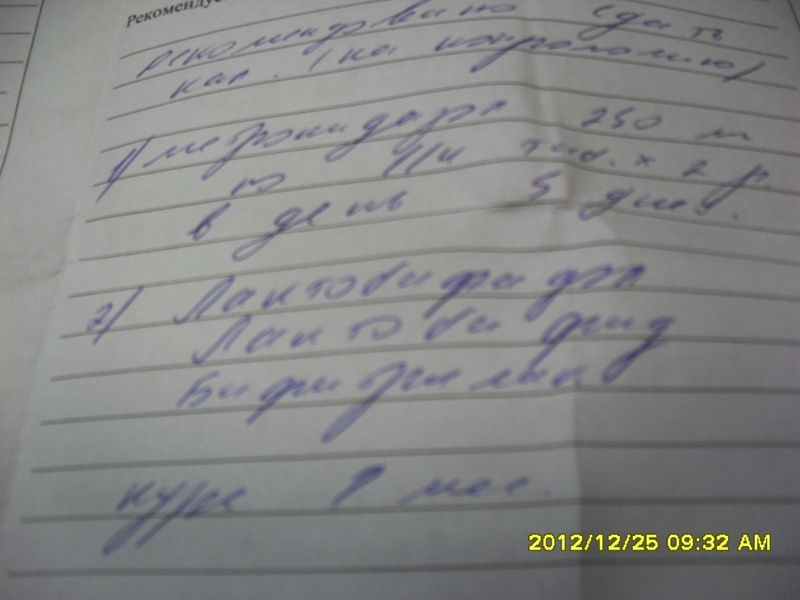 Рекомендуе
рекомендовано сдать
кал. (на копрологию)
1) метронидазол 250 м
по 1/4 таб. x 2 р.
в день 5 дней.
2) Лактобифадол
Лактобифид
курс 1 мес.
2012/12/25 09:32 AM